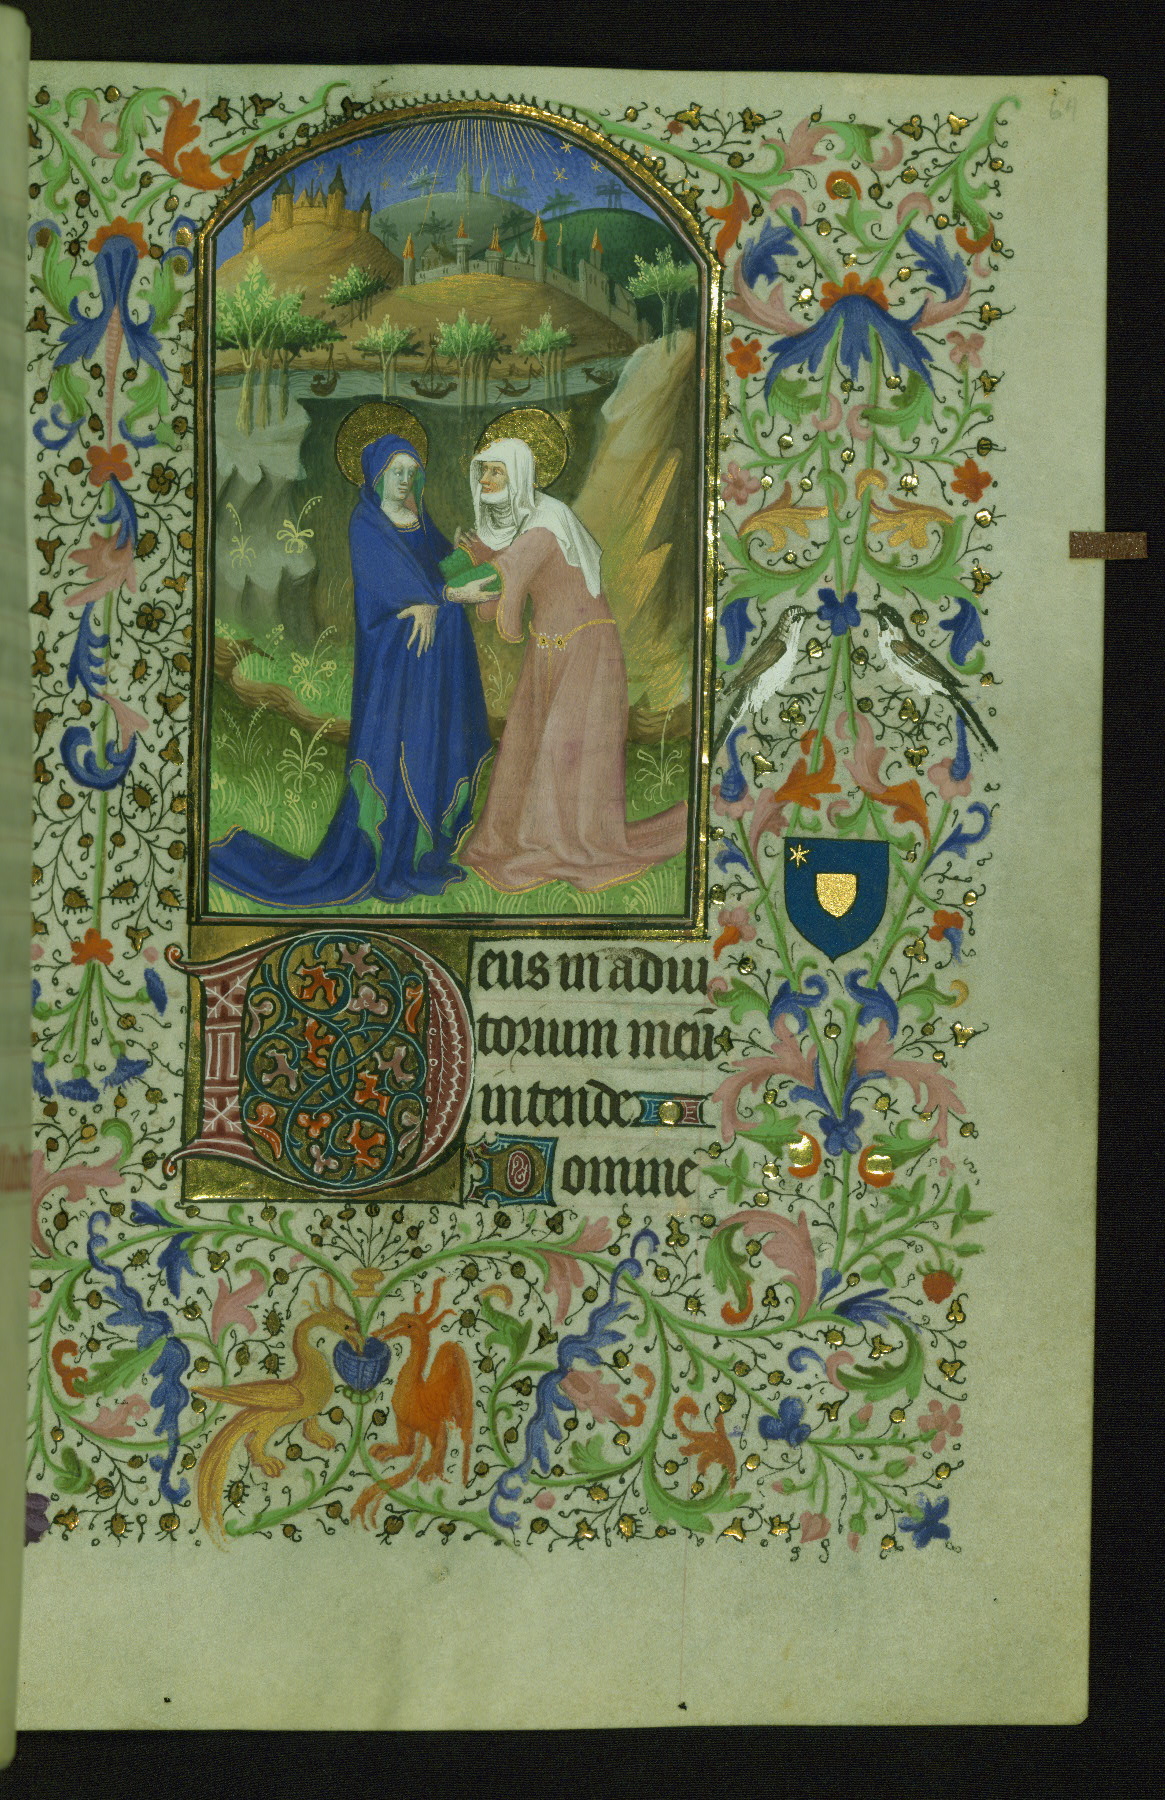 64
Deus in adiu
torium meu̅
intende
Domine